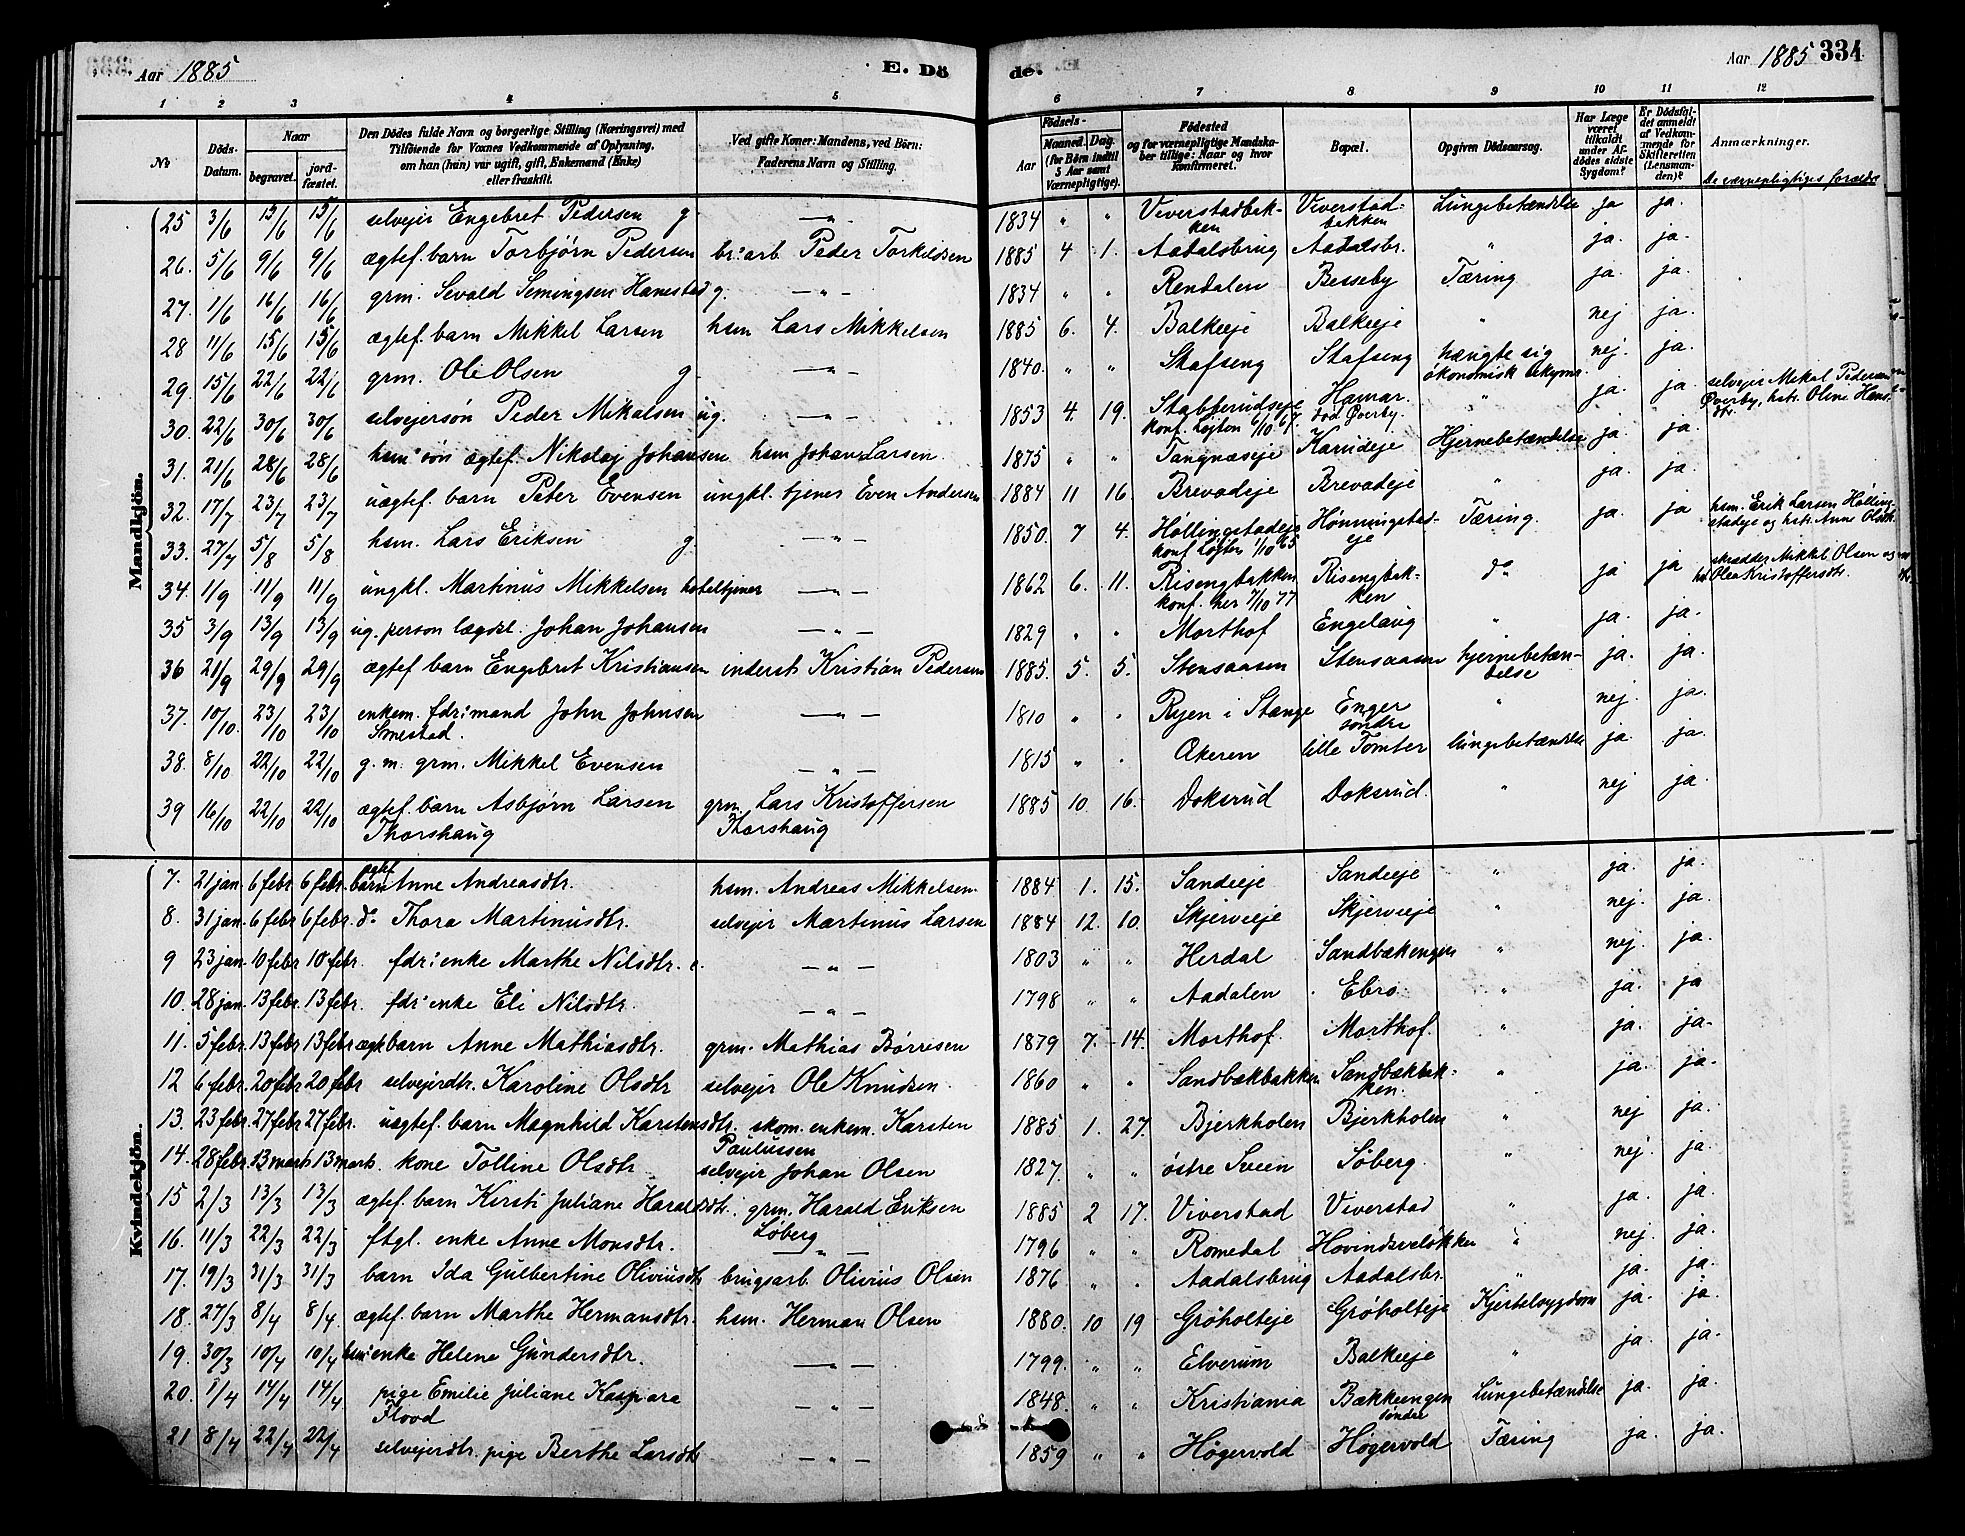 Aar 1885
E. Dö
de.
Aar 1885 334
1 2 3 4 5 6 7 8 9 10 11 12
No
Döds-Datum.
Naar
begravet.
jord-fæstet.
Den Dödes fulde Navn og borgerlige Stilling (Næringsvei) med
Tilföiende for Voxnes Vedkommende af Oplysning,
om han (hun) var ugift, gift, Enkemand (Enke)
eller fraskilt.
Ved gifte Koner: Mandens, ved Börn:
Faderens Navn og Stilling.
Födsels-
Aar
Maaned. Dag.
(for Börn indtil
5 Aar samt
Værnepligtige).
Födested
og for værnepligtige Mandska-
ber tillige: Naar og hvor
konfirmeret.
Bopæl.
Opgiven Dödsaarsag.
Har Læge
været
tilkaldt
under Af-
dödes sidste
Sygdom?
Er Dödsfal-
det anmeldt
af Vedkom-
mende for
Skifteretten
(Lensman-
den)?
Anmærkninger.
De værnepligtiges forældr
Mandkjön.
25 3/6 15/6 15/6 selvejer Engebret Pedersen g. — " — 1834 " " Viverstadbak-ken Viverstad-bakken Lungebetændelse ja ja.
26. 5/6 9/6 9/6 ægtef. barn Torbjørn Pedersen br: arb. Peder Torkildsen 1885 4 1. Aadalsbrug Aadalsbr. " ja. ja.
27. 1/6 16/6 16/6 grm. Sevald Semingsen Hanestad g. — " — 1834 " " Rendalen Besseby Tæring ja. ja.
28 11/6 15/6 15/6 ægtef. barn Mikkel Larsen hsm Lars Mikkelsen 1885 6. 4. Balkeeje Balkeeje " nej ja.
29. 15/6 22/6 22/6 grm. Ole Olsen g. — " — 1840. " " Stafseng Stafseng hængte sig økonomisk bekymr. nej. ja.
30. 22/6 30/6 30/6 selvejersøn Peder Mikalsen ug. — " — 1853 4. 19. Stabberudseje konf. Løjten 6/10 67. Hamar. død Øverby. " ja. ja selvejer Mikal Pedersen Øverby, hstr. Oline Hans dtr.
31. 21/6 28/6 28/6 hsm søn ægtef. Nikolaj Johansen hsm Johan Larsen. 1875 " " Tangnæseje Karudeje Hjernebetændelse ja. ja.
32. 17/7 23/7 23/7 uægtef. barn Peter Evensen ungkl. tjener Even Andersen 1884 11 16 Brevadeje Brevadeje " ja. ja.
33. 27/7 5/8 5/8 hsm. Lars Eriksen g. — " — 1850. 7 4. Høllingstadeje konf Løjten 1/10 65 Hønningstad-eje Tæring. ja. ja hsm. Erik Larsen Hølling stadeje og hstr. Anne Olsdtr.
34. 1/9 11/9 11/9 ungkl. Martinus Mikkelsen hoteltjener — " — 1862 6. 11. Risengbakken konf. her 7/10 77 Risengbak-ken do ja ja skrædder Mikkel Olsen og h. Olea Kristoffersdtr.
35 3/9 13/9 13/9 ug. person lægdsl. Johan Johansen — " — 1829 " " Morthof Engelaug " ja. ja.
36 21/9 29/9 29/9 ægtef. barn Engebret Kristiansen inderst Kristian Pedersen 1885. 5. 5. Stensaasen Stensaasen hjernebetæn-delse ja. ja.
37. 10/10. 23/10 23/10 enkem. fdr: mand John Johnsen Smestad. — " — 1810 " " Ryen i Stange Enger søndre " nej. ja.
38. 8/10 22/10 22/10 g. m. grm. Mikkel Evensen — " — 1815 " . Akeren lille Tomter lungebetændelse ja. ja.
39 16/10 22/10 22/10 ægtef. barn Asbjørn Larsen Thorshaug grm. Lars Kristoffersen Thorshaug 1885 10. 16. Doksrud Doksrud. " nej ja.
Kvindekjön.
7. 21 jan 6 febr 6 febr. ægtef barn Anne Andreasdtr. hsm. Andreas Mikkelsen 1884 1. 15. Sandeeje Sandeeje " ja. ja.
8. 31 jan 6 febr 6 febr. do Thora Martinusdtr. selvejer Martinus Larsen 1884 12. 10. Skjerveeje Skjerveeje " nej. ja.
9 23 jan 10 febr 10 febr. fdr: enke Marthe Nilsdtr. — " — 1803 " " Herdal Sandbækengen " nej. ja.
10. 28 jan. 13 febr. 13 febr. fdr: enke Eli Nilsdtr. — " — 1798 " " Aadalen Ebro. " ja. ja
11. 5 febr. 13 febr 13 febr ægtf barn Anne Mathiasdtr. grm. Mathias Børresen 1879 7. 14. Morthof. Morthof. " ja. ja.
12 6 febr. 20 febr 20 febr selvejerdtr. Karoline Olsdtr selvejer Ole Knudsen. 1860 " " Sandbækbakken Sandbækbak-ken. " ja. ja.
13. 23 febr 27 febr 27 febr. uægtef. barn Magnhild Karstensdtr. skom. enkem. Karsten Paulussen 1885 1. 27. Bjerkholen Bjerkholen " nej ja.
14. 28 febr. 13 marts 13 marts. kone Tolline Olsdtr selvejer Johan Olsen 1827. " " østre Sveen Søberg. " nej. ja.
15 2/3 13/3 13/3 ægtef. barn Kirsti Juliane Haraldsdtr. grm. Harald Eriksen Løberg 1885 2 17. Viverstad Viverstad " ja. ja.
16. 11/3 22/3 22/3 ftgl. enke Anne Monsdtr. — " — 1796 " " Romedal Hovindsveløkken " nej. ja.
17. 19/3 31/3 31/3 barn Ida Gulbertine Oliviusdtr brugsarb. Olivius Olsen 1876 " . Aadalsbrug Aadalsbr. " ja. ja.
18. 27/3 8/4 8/4. ægtef. barn Marthe Hermansdtr. hsm. Herman Olsen 1880. 10 19 Grøholteje Grøholteje Kjertelsygdom ja. ja.
19. 30/3 10/4 10/4 hsm: enke Helene Gundersdtr. — " — 1799. " " Elverum Balkeeje " ja. ja.
20. 1/4 14/4 14/4 pige Emilie Juliane Kaspara Flood — " — 1848. " " Kristiania Bækkeengen søndre Lungebetændelse ja. ja.
21 8/4 22/4 22/4 selvejerdtr. pige Berthe Larsdtr — " — 1859 " " Høgervold Høgervold Tæring ja. ja.